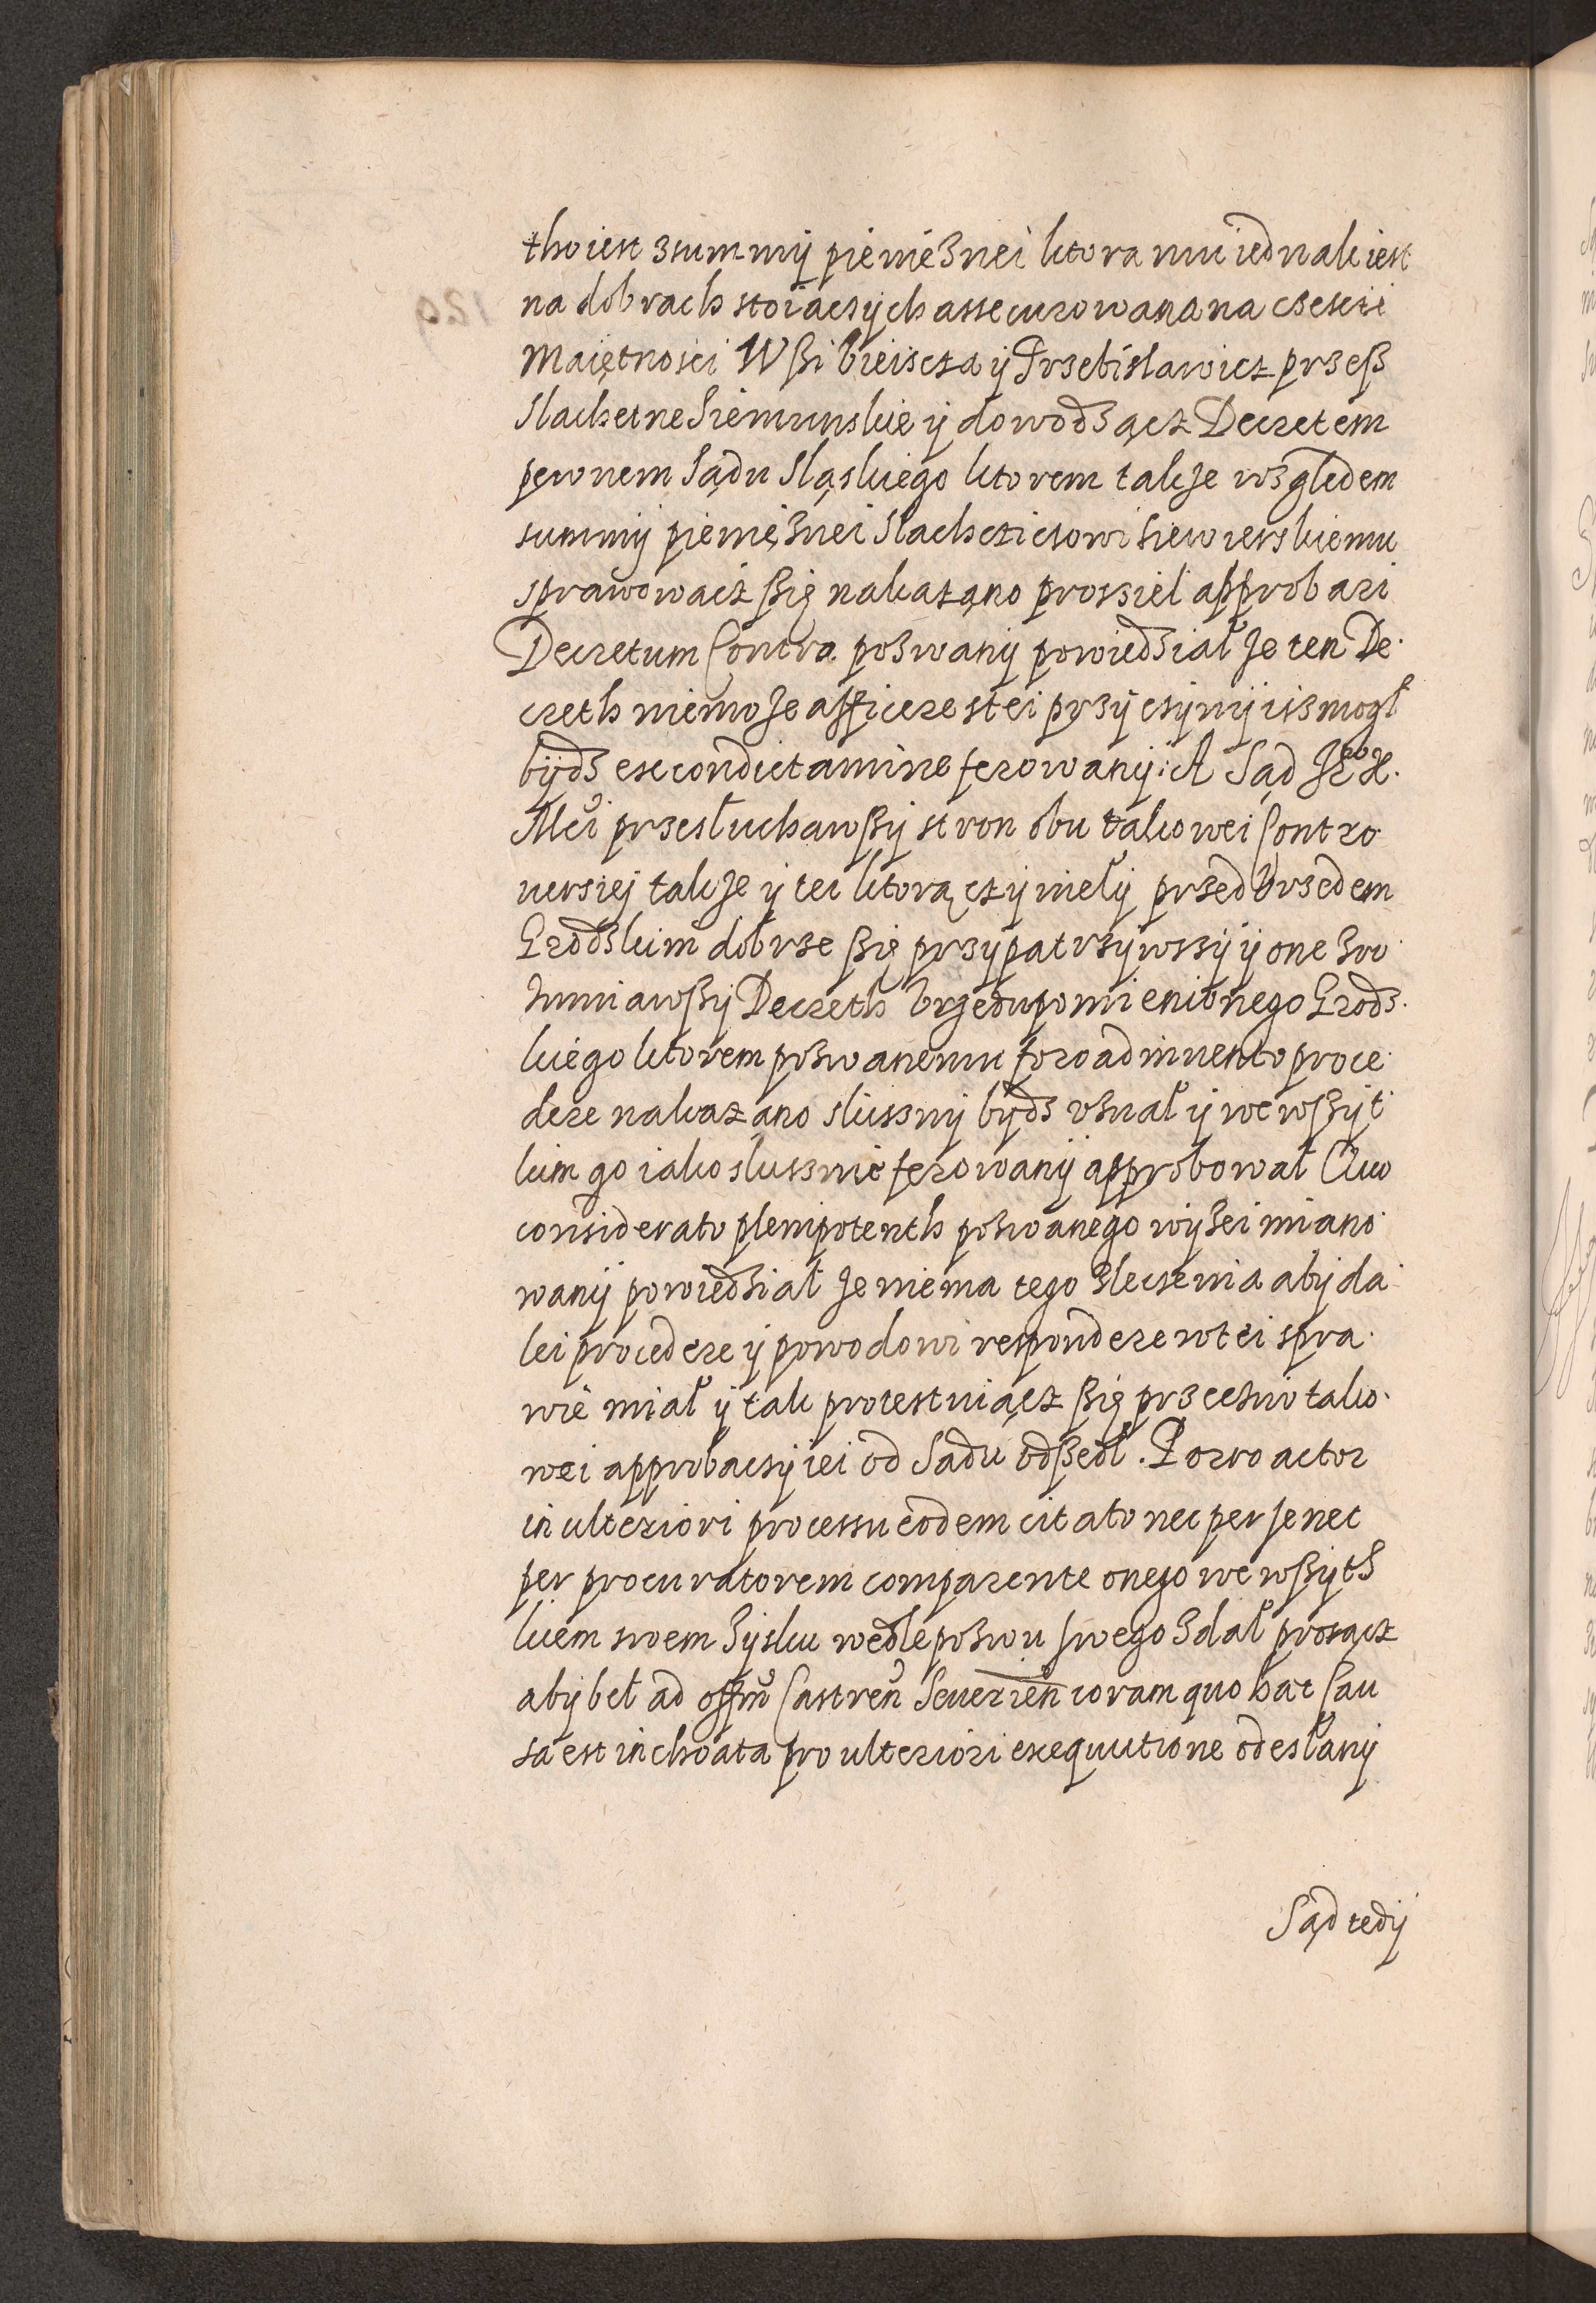 tho iest z summy pienięznei ktora mu iednak iest
na dobrach stoiaczych assecurowana na części
Maiętnosci Wsi bieiscza y Przebislawicz przeß
Slachetne Siemunskie y dowodząc Decretem
pewnem Sądu Sląskiego ktorem takze względem
summy pienięznei Slachcziczowi Siewierskiemu
sprawowacz ßię nakazano prossiel approbari
Decretum Contra pozwany powiedział ze ten De
creth niemoze afficere stei przyczyny isz mogl
bydz ex condictamine ferowany: A Sąd Je° X.
Mći przesłuchawßy stron obu takowei Contro
uersiej takze y tei ktorą czynieły przed vrzedem
Grodzkim dobrze ßię przypatrzywszy y one zro
zumiawßy Decreth vrzedu pomienionego Grodz
kiego ktorem pozwanemu foro adinuento proce
dere nakazano sluszny bydz vznał y we wßyt
kim go iako sluszńie ferowany approbował Quo
considerato plenipotenth pozwanego wyzei miano
wany powiedział ze niema tego zleczenia aby da
lei procedere y powodowi respondere w tei spra
wie miał y tak protestuiącz ßię przeciwo tako
wei approbacyiei od Sadu odßedł. Porro actor
in ulteriori processu eodem citato nec per se nec
per procuratorem comparente onego we wßyth
kiem swem Zysku wedle pozwu swego zdał prosącz
aby beł ad offm̃ Castreñ Seuerieñ coram quo haec Cau
sa est inchoata pro ulteriori exequutione odesłany
Sąd tedy
129